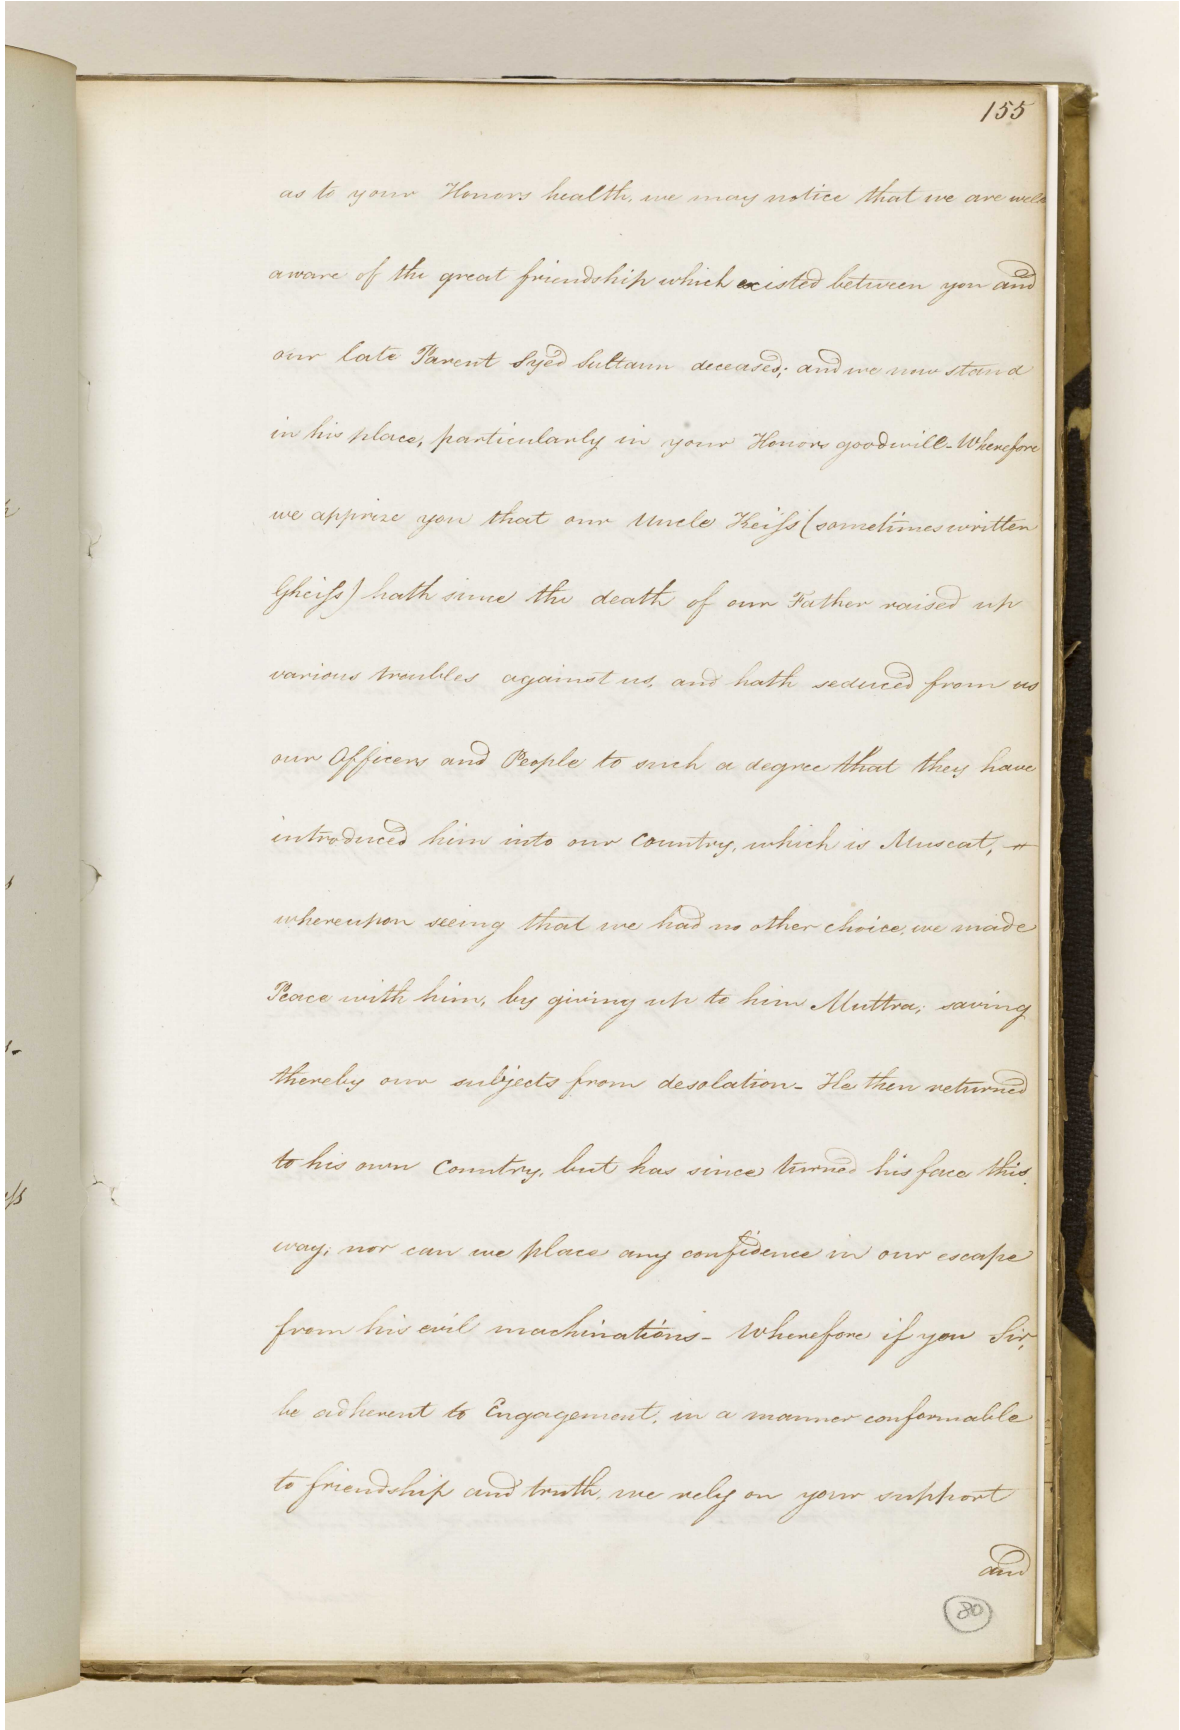 155
as to your Honors health, we may notice that we are well
aware of the great friendship which existed between you and
our late Parent Syed Sultaun deceased; and we now stand
in his place, particularly in your Honors goodwill - Wherefore
we apprize you that our Uncle Keiss (sometimes written
Gheiss) hath since the death of our Father raised up
various troubles against us, and hath seduced from us
our Officers and People to such a degree that they have
introduced him into our Country, which is Muscat,
whereupon seeing that we had no other choice, we made
Peace with him, by giving up to him Muttra; saving
thereby our subjects from desolation - He then returned
to his own Country, but has since turned his face this
way; nor can we place any confidence in our escape
from his evil machinations - Wherefore if you Sir,
be adherent to Engagement, in a manner conformable
to friendship and truth, we rely on your support
and
80